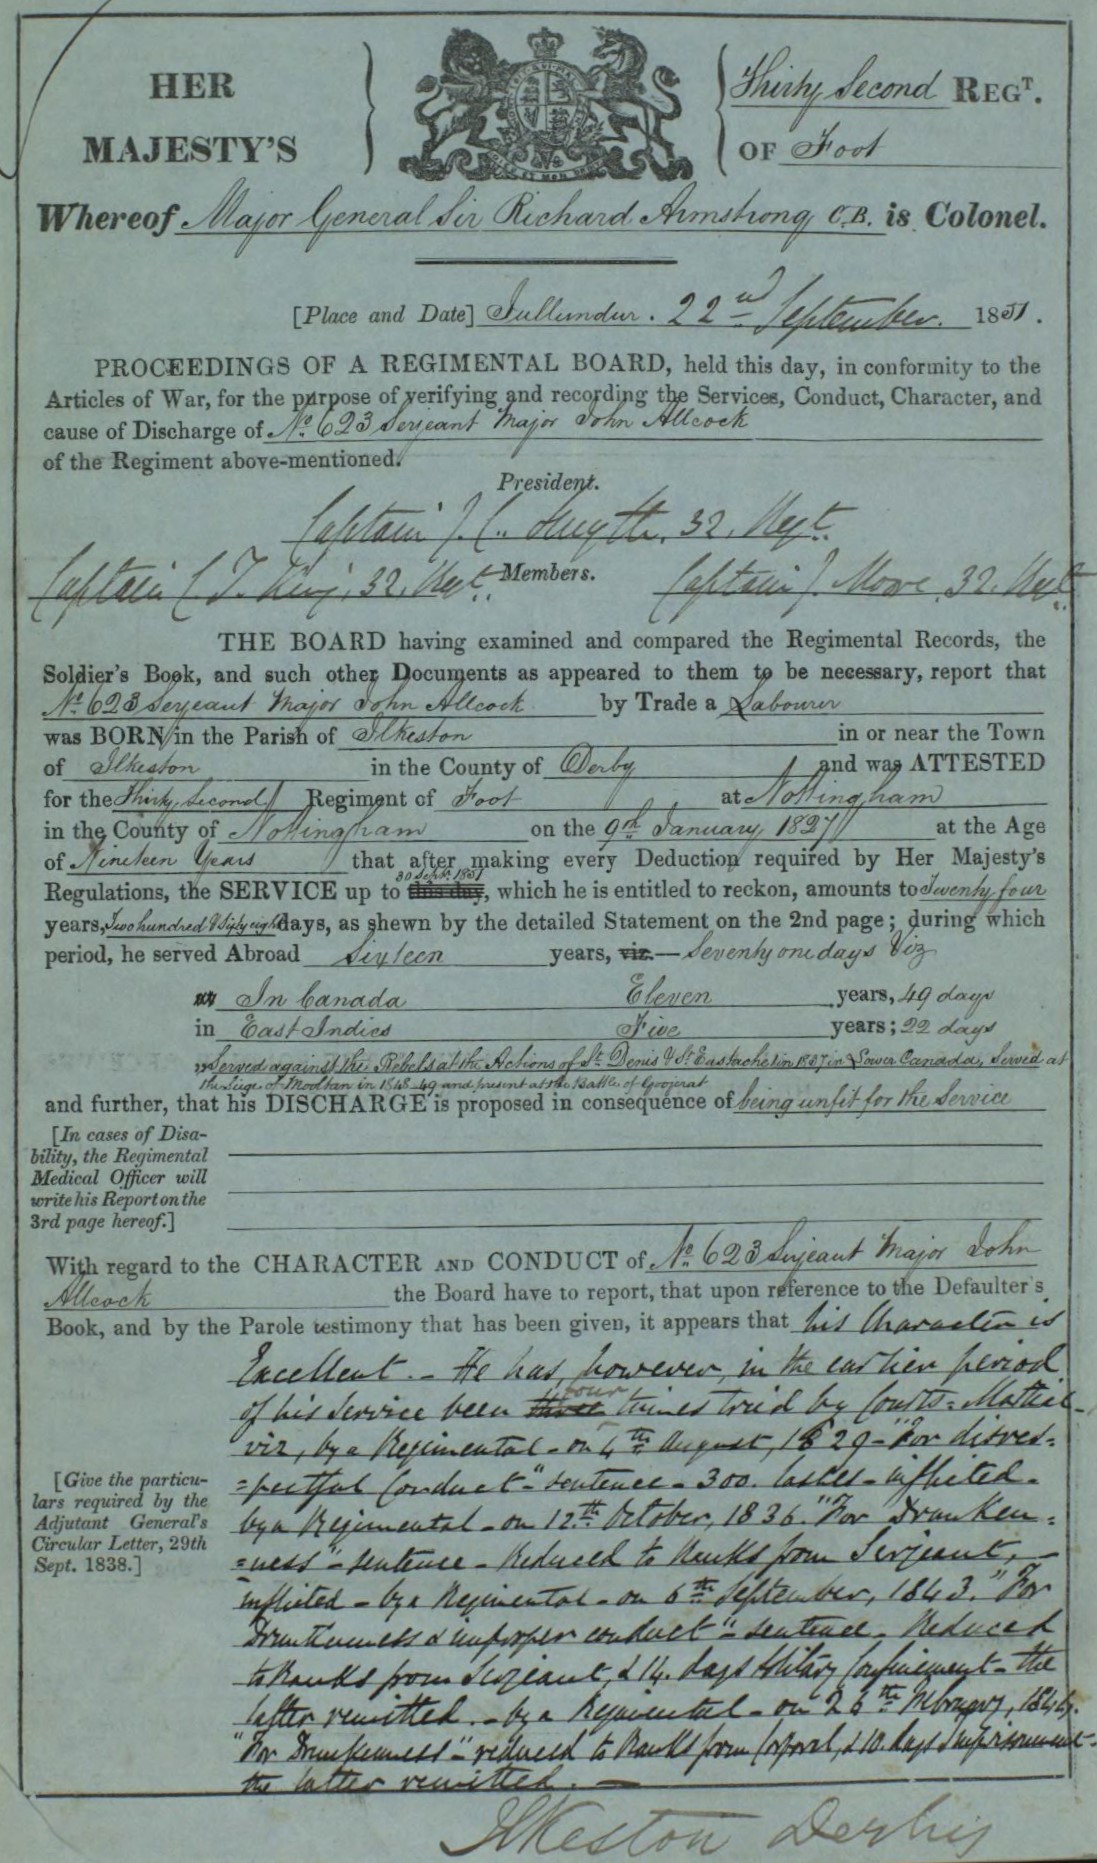 HER
MAJESTY'S
Thirty Second REGT.
OF Foot
Whereof Major General Sir Richard Armstrong C.B. is Colonel.
[Place and Date] Jullundur. 22nd September. 1851.
PROCEEDINGS OF A REGIMENTAL BOARD, held this day, in conformity to the
Articles of War, for the purpose of verifying and recording the Services, Conduct, Character, and
cause of Discharge of No. 623 Serjeant Major John Allcock
of the Regiment above-mentioned.
President.
Captain J. C. Smyth, 32. Regt.
Members.
Captain C T. King, 32. Regt. Captain J. Moore, 32. Regt.
THE BOARD having examined and compared the Regimental Records, the
Soldier's Book, and such other Documents as appeared to them to be necessary, report that
No. 623 Serjeant Major John Allcock by Trade a Labourer
was BORN in the Parish of Ilkeston in or near the Town
of Ilkeston in the County of Derby and was ATTESTED
for the Thirty Second Regiment of Foot at Nottingham
in the County of Nottingham on the 9th January 1827 at the Age
of Nineteen Years that after making every Deduction required by Her Majesty's
30 Sept. 1851
Regulations, the SERVICE up to this day, which he is entitled to reckon, amounts to Twenty four
years, Two hundred & Sixty eight days, as shewn by the detailed Statement on the 2nd page; during which
period, he served Abroad Sixteen years, viz.— Seventy one days Viz
In Canada Eleven years, 49 days
in East Indies Five years; 22 days
Served against the Rebels at the Actions of St. Denis & St. Eustache in 1837 in Lower Canada, Served at
the Siege of Mooltan in 1848-49 and present at the Battle of Goojerat
and further, that his DISCHARGE is proposed in consequence of being unfit for the Service
[In cases of Disa-
bility, the Regimental
Medical Officer will
write his Report on the
3rd page hereof.]
With regard to the CHARACTER AND CONDUCT of No. 623 Serjeant Major John
Allcock the Board have to report, that upon reference to the Defaulter's
Book, and by the Parole testimony that has been given, it appears that his Character is
Excellent. - He has, however, in the earlier period
four
of his Service been three times tried by Courts=Martial-
viz, by a Regimental - on 4th August, 1829 - "For disres=
=pectful Conduct" - sentence - 300. lashes - inflicted -
by a Regimental - on 12th October, 1836. "For Drunken=
=ness" - sentence - Reduced to Ranks from Serjeant, -
inflicted - by a Regimental - on 6th September, 1843. "For
Drunkenness & improper conduct" - sentence - Reduced
to Ranks from Serjeant, & 14. days solitary Confinement - the
latter remitted. - by a Regimental - on 26th February, 1846.
"For Drunkenness" - reduced to Ranks from Corporal, & 10. days Imprisonment-
the latter remitted. -
[Give the particu-
lars required by the
Adjutant General's
Circular Letter, 29th
Sept. 1838.]
Ilkeston Derby